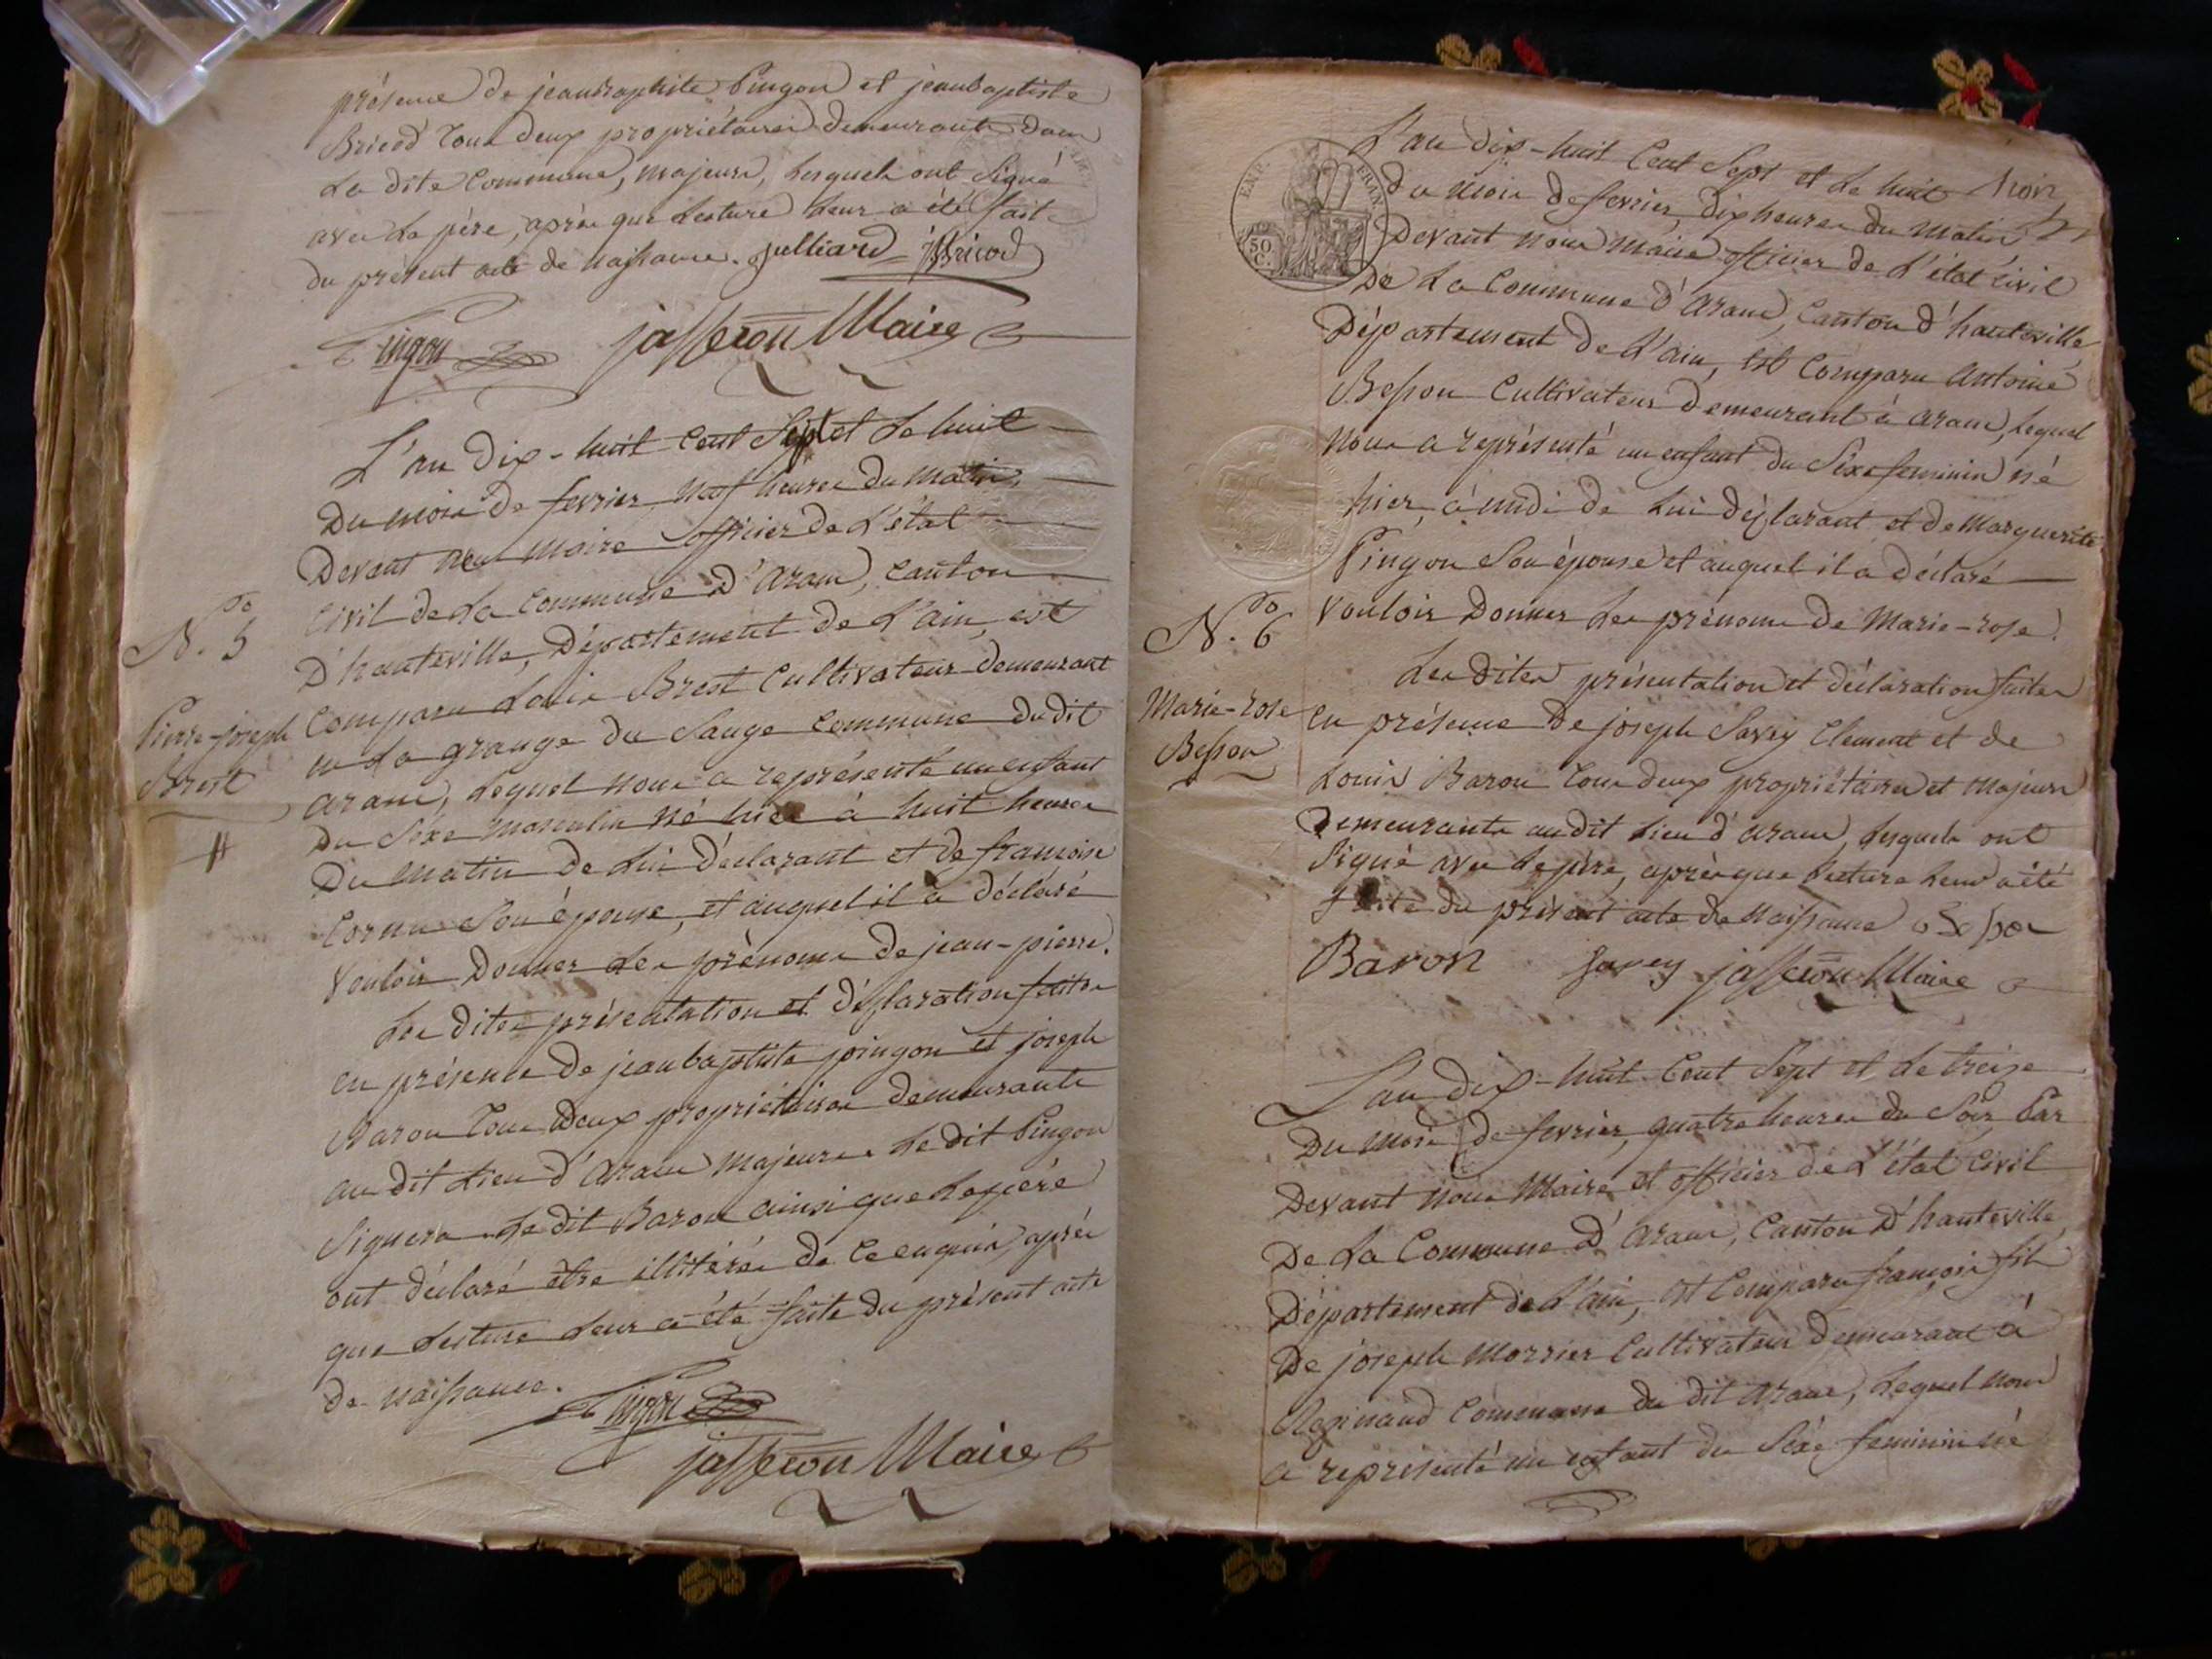 présence de jeanbaptiste Pingon et jeanbaptiste
Bricod tous deux propriétaires demeurants dans
La dite Commune, majeurs, Lesquels ont Signé
avec Le père, après que Lecture Leur a été fait
du présent acte de naissance. Julliard JBBricod
Pingon jasseron Maire
L'an dix-huit Cent Sept et Le huit
Du mois de fevrier neuf heures du matin,
Devant nous maire officier de L'état
Civil de La Commune d'aranc, Canton
D'hauteville, Département de L'ain, est
Comparu Louis Brest Cultivateur demeurant
N.o 5
en La grange du Sauge Commune du dit
Pierre-joseph
Brest
aranc, Lequel nous a représenté un enfant
Du Séxe masculin né hier à huit heures
Du matin de Lui déclarant et de françoise
Cornu Son épouse, et auquel il a déclaré
Vouloir Donner Les prénoms de jean-pierre.
Les dites présentation et déclaration faites
en présence de jeanbaptiste pingon et joseph
Baron Tous deux propriétaires demeurants
au dit Lieu d'aranc majeurs Le dit Pingon
Signera Le dit Baron ainsi que Le père
ont déclaré être illitérés de ce enquis, après
que Lecture Leur a été faite du présent acte
de naissance.
Pingon
jasseron Maire
EMP. FRAN.
50
C.
L'an dix-huit Cent Sept et Le huit
Du mois de fevrier, dix heures du matin
Devant nous maire officier de L'état Civil
De La Commune d'aranc, Canton d'hauteville
Département de L'ain, est Comparu antoine
Besson Cultivateur demeurant à aranc, Lequel
nous a représenté un enfant du Sexe feminin né
hier, à midi de Lui déclarant et de Marguerite
Pingon Son épouse et auquel il a déclaré
Vouloir Donner Les prénoms de Marie-rose.
N.o 6
Marie-rose
Besson
Les dites présentation et déclaration faites
en présence de joseph Savey Clement et de
Louis Baron tous deux propriétaires et majeurs
Demeurants au dit Lieu d'aranc, Lesquels ont
Signé avec Le père, après que Lecture Leur a été
faite du présent acte de naissance
Baron Savey jasseron Maire
L'an dix-huit Cent Sept et Le treize
Du mois de fevrier, quatre heures du Soir, Par
Devant nous Maire et officier de L'état Civil
De La Commune d'aranc, Canton d'hauteville,
Département de L'ain, est Comparu françois fils
De joseph Morrier Cultivateur demeurant à
Rogninaud Commune du dit aranc, Lequel nous
a représenté un enfant du Séxe feminin né